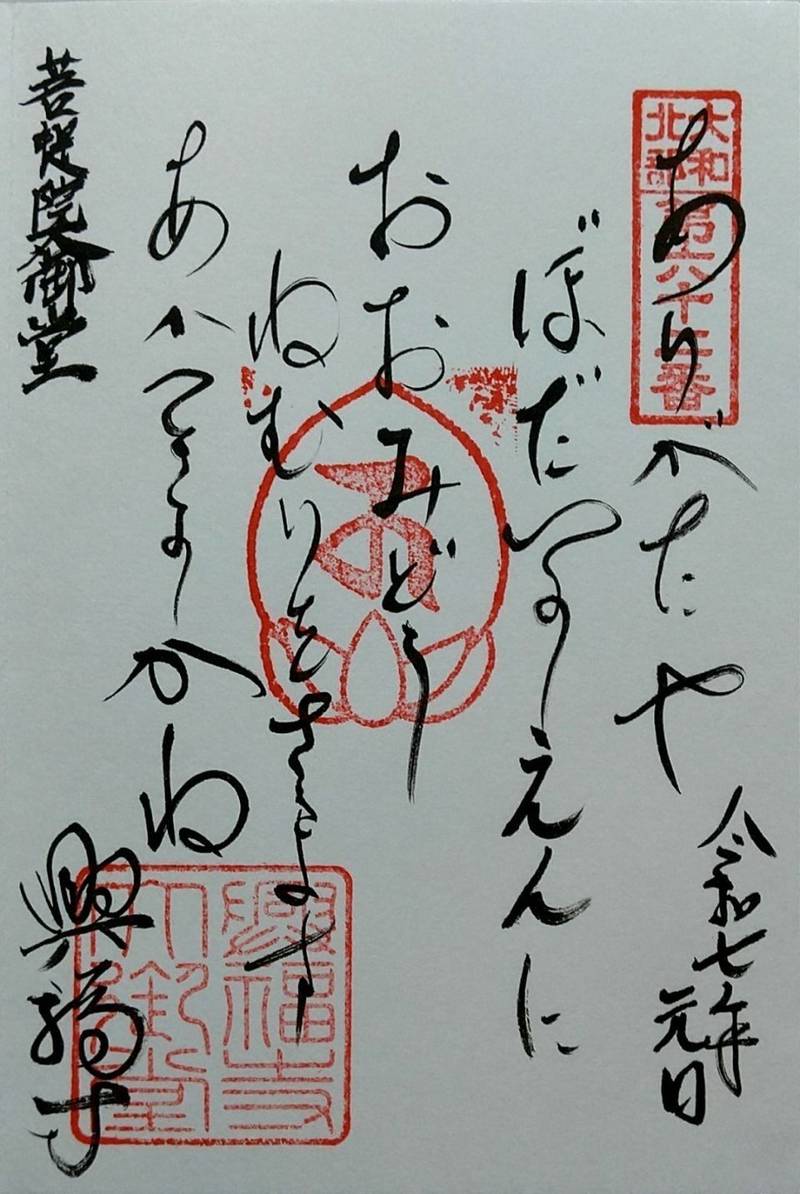 大和北部
第六十二番
ありがたや
ぼだいのえんに
おおみどう
ねむりをさます
あかつきのかね
令和七年
元日
菩提院大御堂
興福寺
興福寺
大御堂